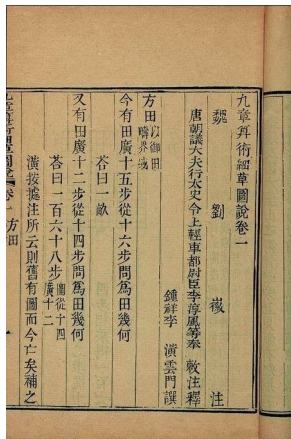 九章算術細草圖說卷一
魏　劉　徽　注
唐朝議大夫行太史令上輕車都尉臣李淳風等奉　敕注釋
鍾祥李　潢雲門譔
方田以御田疇界域
今有田廣十五步從十六步問為田幾何
荅曰一畝
又有田廣十二步從十四步問為田幾何
荅曰一百六十八步圖從十四廣十二
潢按據注所云則舊有圖而今亡矣補之
九章算術細草圖說卷一　方田　一